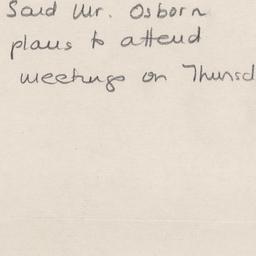 Said Mr. Osborn
plans to attend
meetings on Thursd